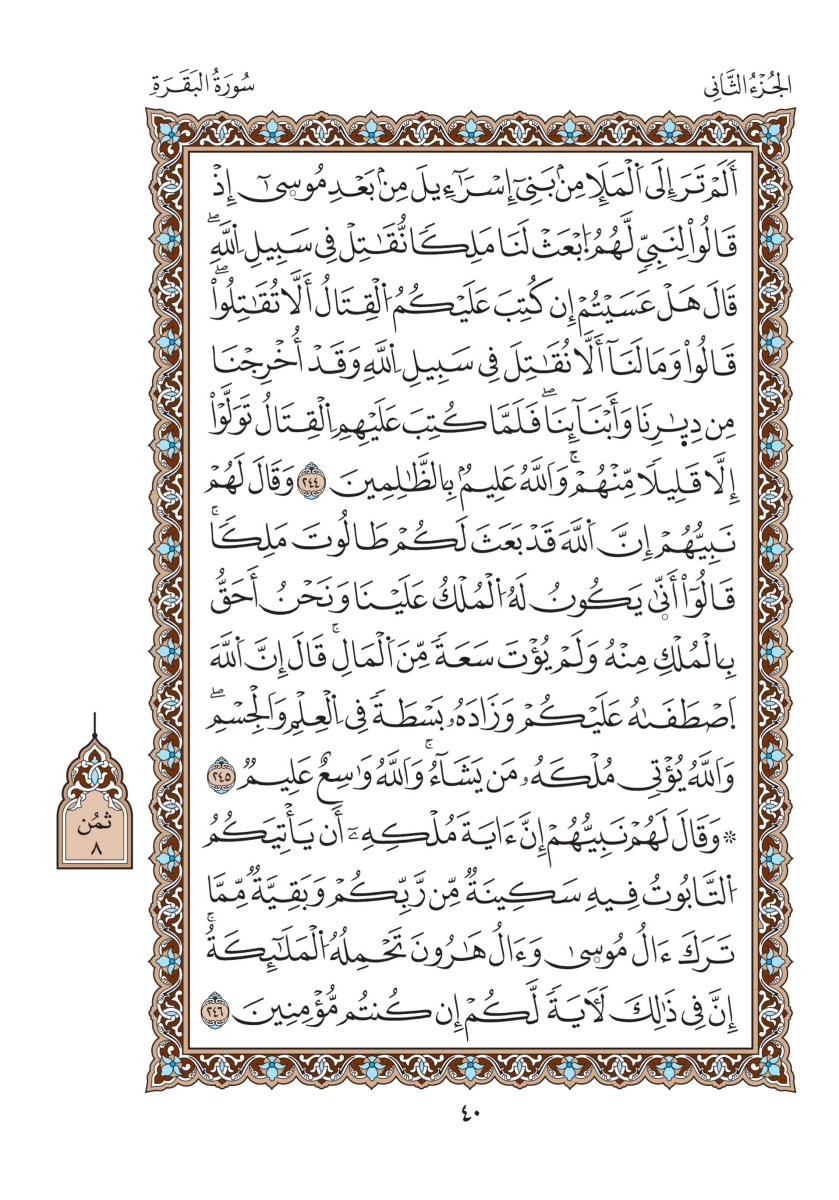 الجُزْءُ الثَّانِى
سُورَةُ البَقَرَةِ
أَلَمْ تَرَ إِلَى اَ۬لْمَلَإِ مِنۢ بَنِىٓ إِسْرَآءِيلَ مِنۢ بَعْدِ مُوس۪ىٰٓ إِذْ
قَالُواْ لِنَبِىّٖ لَّهُمُ اُ۪بْعَثْ لَنَا مَلِكٗا نُّقَٰتِلْ فِى سَبِيلِ اِ۬للَّهِۖ
قَالَ هَلْ عَسَيْتُمْ إِن كُتِبَ عَلَيْكُمُ اُ۬لْقِتَالُ أَلَّا تُقَٰتِلُواْۖ
قَالُواْ وَمَا لَنَآ أَلَّا نُقَٰتِلَ فِى سَبِيلِ اِ۬للَّهِ وَقَدْ أُخْرِجْنَا
مِن دِيٰ۪رِنَا وَأَبْنَآئِنَاۖ فَلَمَّا كُتِبَ عَلَيْهِمِ اِ۬لْقِتَالُ تَوَلَّوْاْ
إِلَّا قَلِيلٗا مِّنْهُمْۚ وَاَ۬للَّهُ عَلِيمُۢ بِالظَّٰلِمِينَ ٢٤٤ وَقَالَ لَهُمْ
نَبِيُّهُمْ إِنَّ اَ۬للَّهَ قَدْ بَعَثَ لَكُمْ طَالُوتَ مَلِكٗاۚ
قَالُوٓاْ أَنّ۪ىٰ يَكُونُ لَهُ اُ۬لْمُلْكُ عَلَيْنَا وَنَحْنُ أَحَقُّ
بِالْمُلْكِ مِنْهُ وَلَمْ يُؤْتَ سَعَةٗ مِّنَ اَ۬لْمَالِۚ قَالَ إِنَّ اَ۬للَّهَ
اَ۪صْطَفَىٰهُ عَلَيْكُمْ وَزَادَهُۥ بَسْطَةٗ فِى اِ۬لْعِلْمِ وَالْجِسْمِۖ
وَاَ۬للَّهُ يُؤْتِى مُلْكَهُۥ مَن يَشَآءُۚ وَاَ۬للَّهُ وَٰسِعٌ عَلِيمٞ ٢٤٥
۞ وَقَالَ لَهُمْ نَبِيُّهُمْ إِنَّ ءَايَةَ مُلْكِهِۦٓ أَن يَأْتِيَكُمُ
اُ۬لتَّابُوتُ فِيهِ سَكِينَةٞ مِّن رَّبِّكُمْ وَبَقِيَّةٞ مِّمَّا
تَرَكَ ءَالُ مُوس۪ىٰ وَءَالُ هَٰرُونَ تَحْمِلُهُ اُ۬لْمَلَٰٓئِكَةُۚ
إِنَّ فِى ذَٰلِكَ لَأٓيَةٗ لَّكُمْ إِن كُنتُم مُّؤْمِنِينَ ٢٤٦
ثُمُن
٨
٤٠